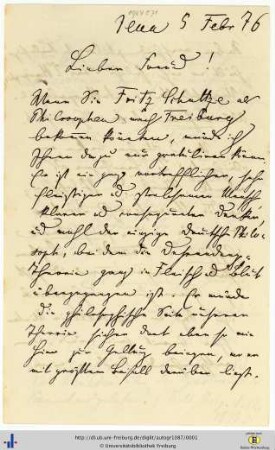 Jena 5 Febr 76
Lieber Freund!
Wenn Sie Fritz Schultze als
Philosophen nach Freiburg
bekommen könnten, würde ich
Ihnen dazu nur gratuliren können.
Er ist ein ganz vortrefflicher, sehr
fleissiger u. Mensch,
klarer u consequenter Denker,
und wohl der einzige deutsche Philo-
soph, bei dem die Descendenz-
Theorie ganz in Fleisch u Blut
übergegangen ist. Er würde
die philosophische Seite unserer
Theorie sicher dort eben so wie
hier zur Geltung bringen, wo er
mit größtem Beifall darüber liest.
http://dl.ub.uni-freiburg.de/diglit/autogr1387/0001
© Universitätsbibliothek Freiburg